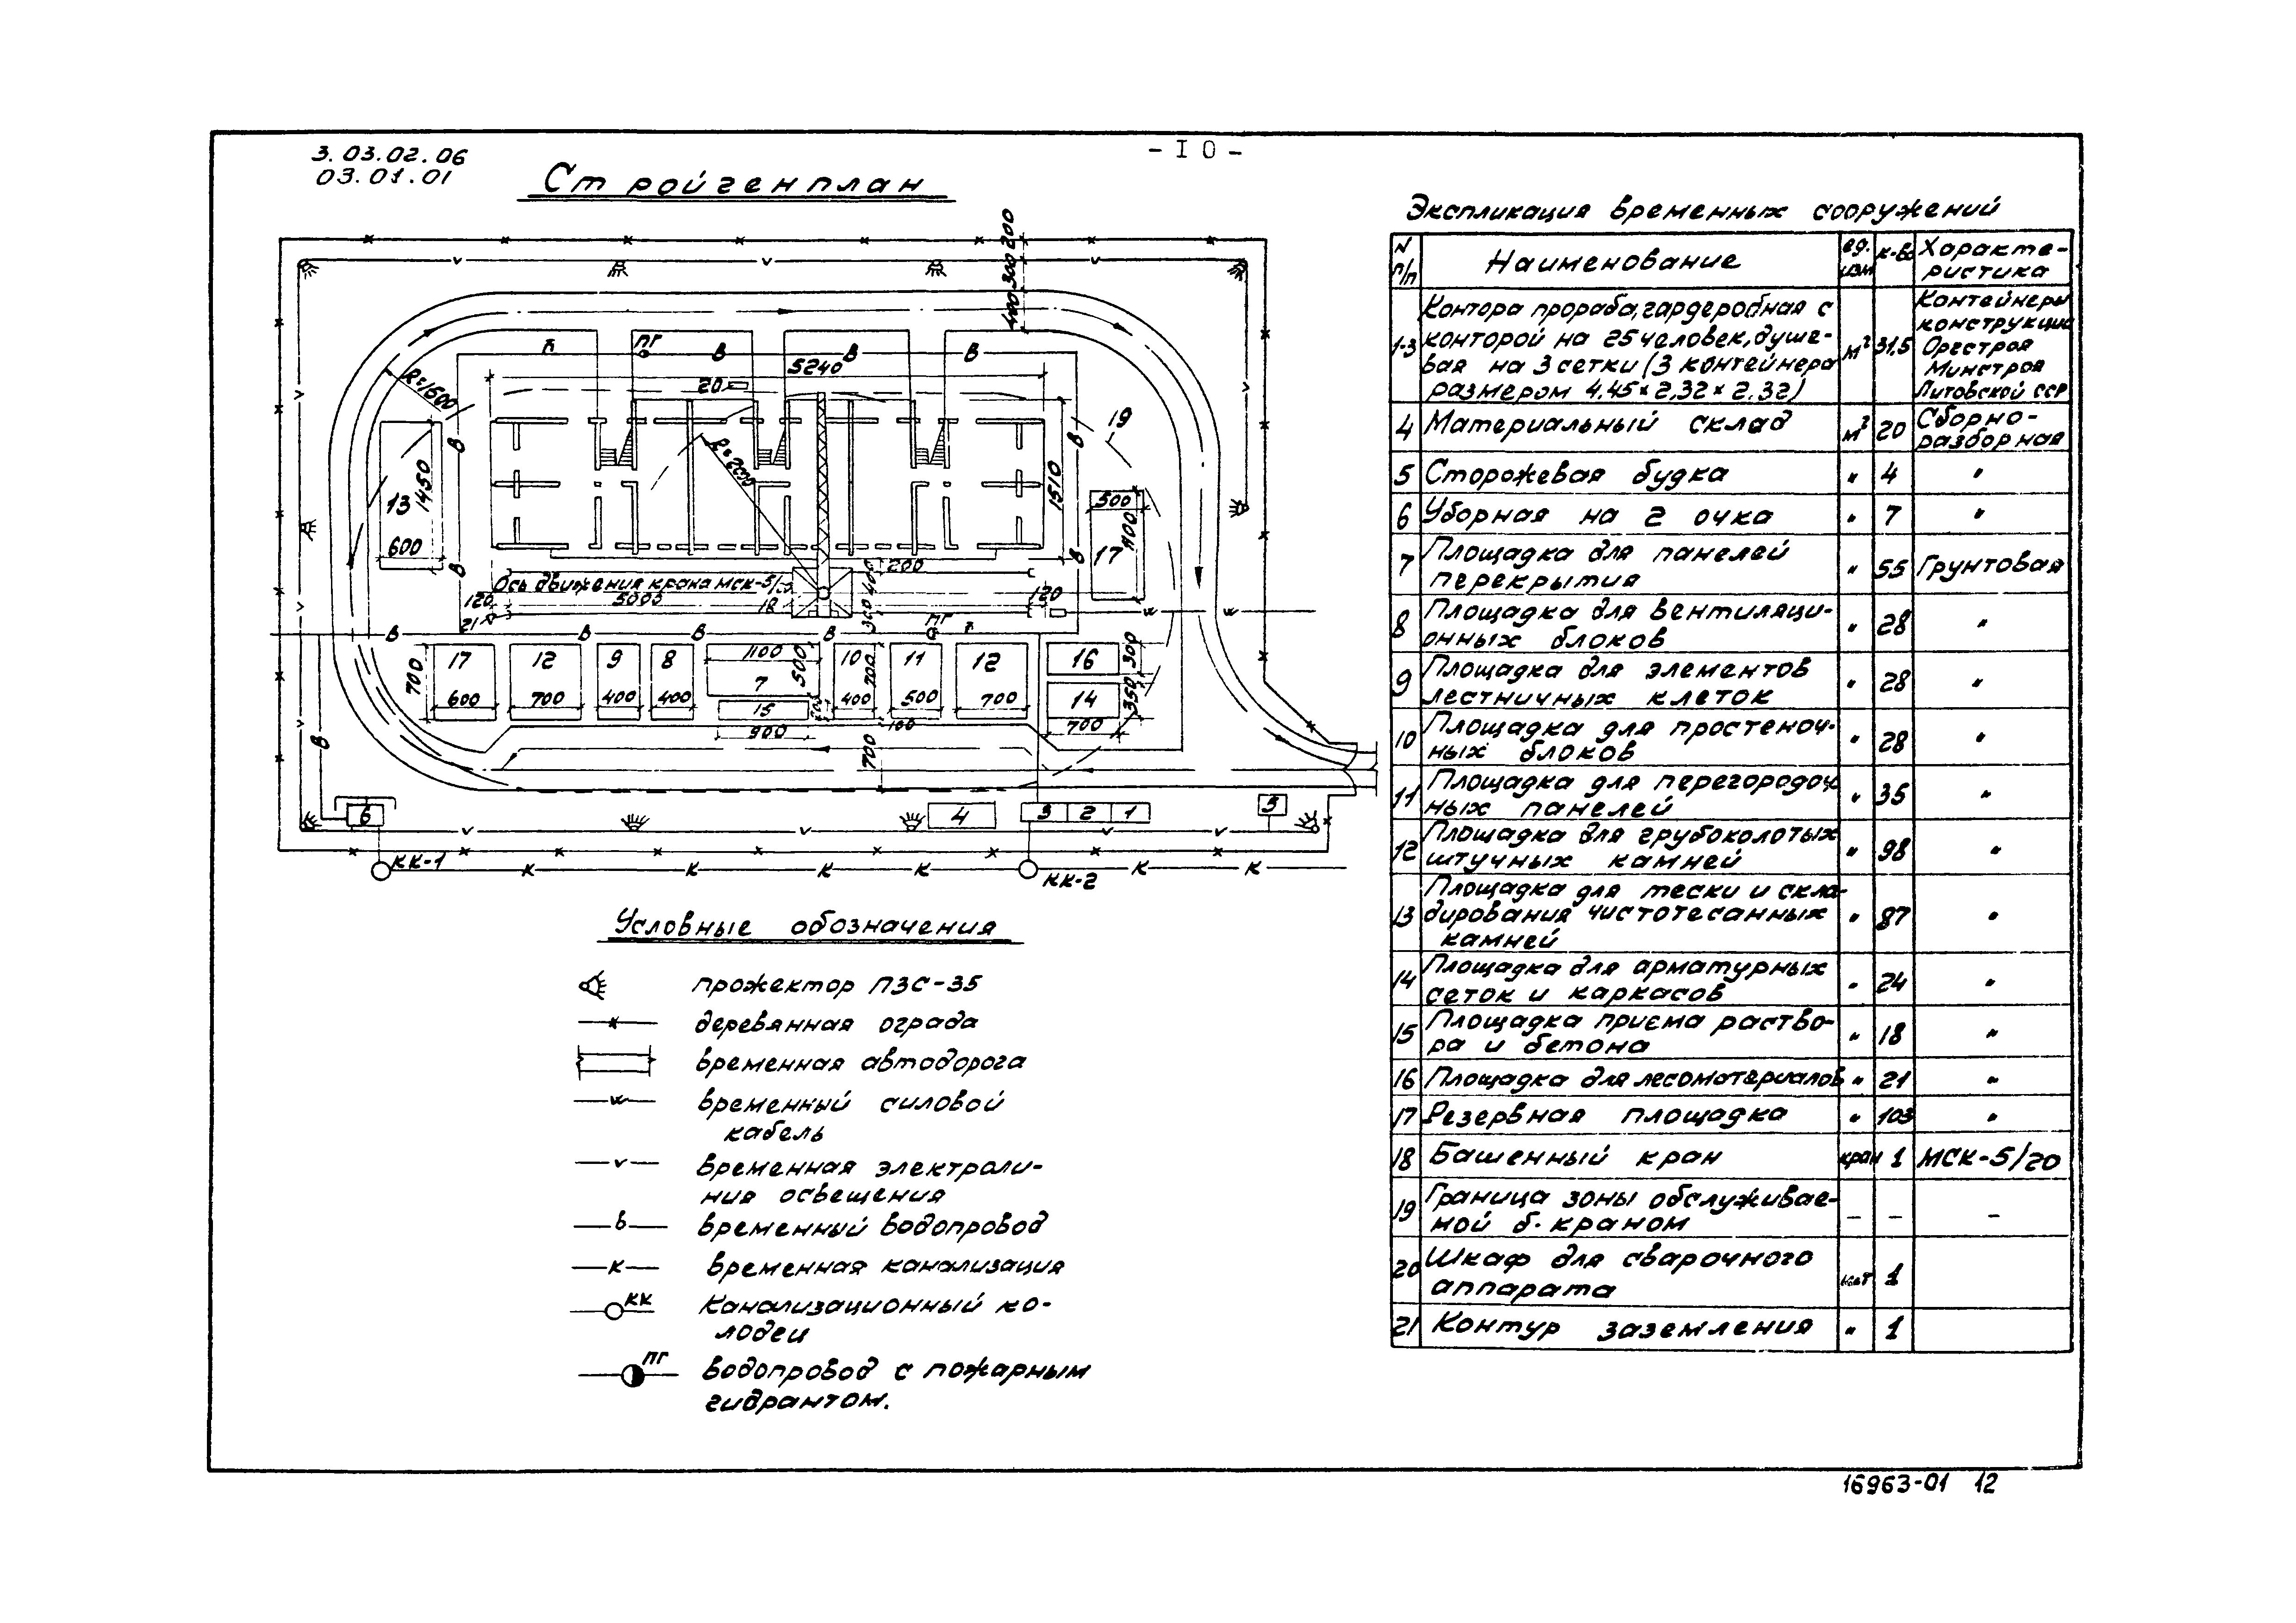 3. 03. 02. 06
03. 01. 01
- I 0 -
Стройгенплан
200
300
400
ПГ
В
В
В
5240
20
R=1600
19
В
В
R=2000
1510
13
1450
600
500
1100
17
В
В
200
Ось движения крана МСК-5/
400
120
5000
18
300
120
21
ПГ
w
w
В
В
В
В
17
12
9
8
1100
500
10
700
11
12
16
300
700
600
700
400
400
7
400
500
700
14
350
15
900
100
700
700
В
6
4
3
2
1
5
КК-1
К
К
К
К
КК-2
К
К
Условные обозначения
прожектор ПЗС-35
деревянная ограда
временная автодорога
w
временный силовой
кабель
v
временная электрали-
ния освещения
в
временный водопровод
к
временная канализация
КК
Канализационный ко-
лодец
ПГ
водопровод с пожарным
гидрантом.
Экспликация временных сооружений
N п/п
Наименование
ед. изм
к-во
Характе-
ристика
1-3
Контора прораба, гардеробная с
конторой на 25 человек, душе-
вая на 3 сетки (3 контейнера
размером 4,45×2,32×2,32)
м²
31,5
Контейнеры
конструкции
Оргстроя
Минстроя
Литовской ССР
4 Материальный склад м² 20 Сборно-
разборная
5 Сторожевая будка " 4 "
6 Уборная на 2 очка " 7 "
7 Площадка для панелей
перекрытия " 55 Грунтовая
8 Площадка для вентиляци-
онных блоков " 28 "
9 Площадка для элементов
лестничных клеток " 28 "
10 Площадка для простеноч-
ных блоков " 28 "
11 Площадка для перегородоч
ных панелей " 35 "
12 Площадка для грубоколотых
штучных камней " 98 "
13 Площадка для тески и скла-
дирования чистотесанных
камней " 87 "
14 Площадка для арматурных
сеток и каркасов " 24 "
15 Площадка приема раство-
ра и бетона " 18 "
16 Площадка для лесоматериалов " 21 "
17 Резервная площадка " 103 "
18 Башенный кран кран 1 МСК-5/20
19 Граница зоны обслуживае-
мой б. краном - - -
20 Шкаф для сварочного
аппарата 1
21 Контур заземления " 1
16963-01 12